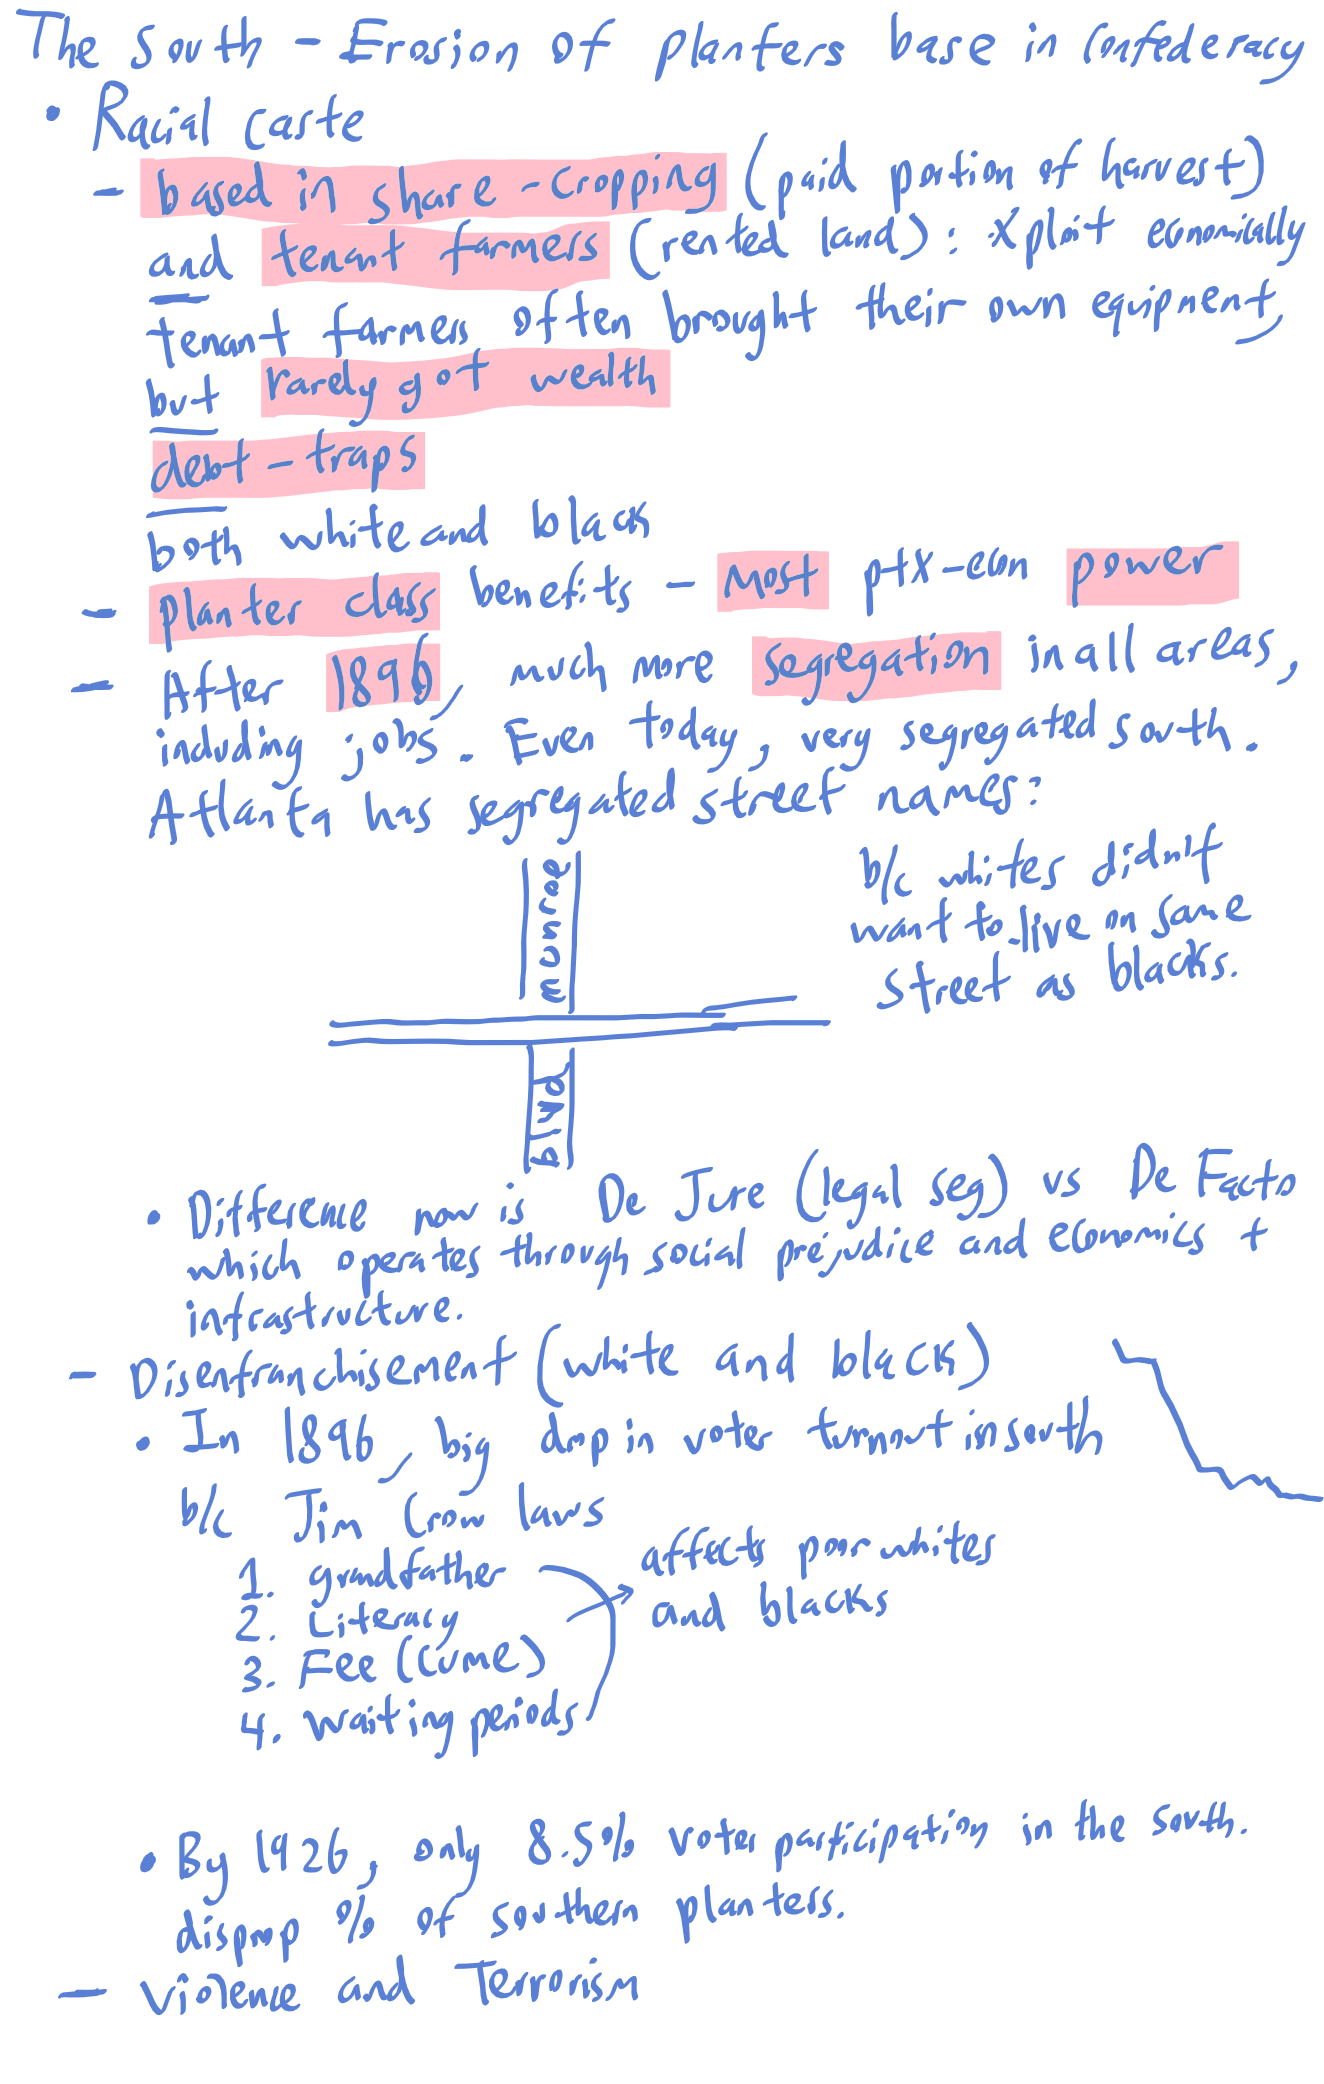 The South - Erosion of planters base in Confederacy
• Racial caste
- based in share-cropping (paid portion of harvest)
and tenant farmers (rented land): xploit economically
tenant farmers often brought their own equipment,
but rarely got wealth
debt-traps
both white and black
- planter class benefits - most ptx-econ power
- After 1896, much more segregation in all areas,
including jobs. Even today, very segregated south.
Atlanta has segregated street names:
b/c whites didn't
want to live on same
street as blacks.
munroe
blvd
• Difference now is De Jure (legal seg) vs De Facto
which operates through social prejudice and economics +
infrastructure.
- Disenfranchisement (white and black)
• In 1896, big drop in voter turnout in south
b/c Jim Crow laws
1. grandfather
2. Literacy
3. Fee (cume)
4. waiting periods
affects poor whites
and blacks
• By 1926, only 8.5% voter participation in the south.
disprop % of southern planters.
- Violence and Terrorism